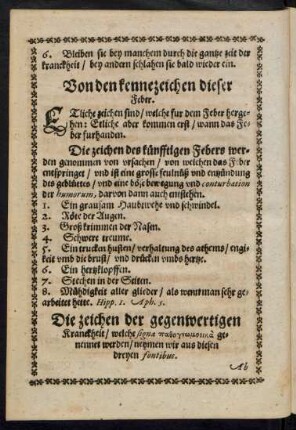 6. Bleiben sie bey manchem durch die gantze zeit der
kranckheit / bey andern schlahen sie bald wieder ein.
Von den kennezeichen dieser
Feber.
ETliche zeichen sind / welche fur dem Feber herge-
hen: Etliche aber kommen erst / wann das Fe-
ber furhanden.
Die zeichen des künfftigen Febers wer-
den genommen von ursachen / von welchen das Feber
entspringet / und ist eine grosse feulnüß und entzündung
des geblüetes / und eine böse bewegung und conturbation
der humorum, darvon dann auch entstehen.
1. Ein grausam Hauptwehe und schwindel.
2. Röte der Augen.
3. Groß krimmen der Nasen.
4. Schwere treume.
5. Ein trucken husten / verhaltung des athems / engi-
keit umb die brust / und drücken umbs hertze.
6. Ein hertzklopffen.
7. Stechen in der Seiten.
8. Müedigkeit aller glieder / als wenn man sehr ge-
arbeitet hette. Hipp. 1. Aph. 5.
Die zeichen der gegenwertigen
Kranckheit / welche signa παθογνωμονικὰ ge-
nennet werden / neymen wir aus diesen
dreyen fontibus.
Ab